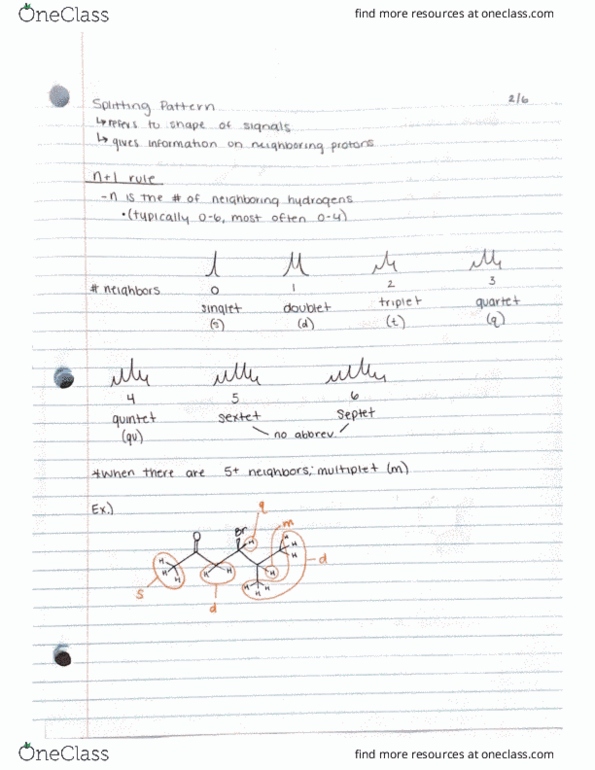 OneClass
find more resources at oneclass.com
2/6
Splitting Pattern
↳ refers to shape of signals
↳ gives information on neighboring protons
n+1 rule
-n is the # of neighboring hydrogens
•(typically 0-6, most often 0-4)
# neighbors 0 1 2 3
singlet doublet triplet quartet
(s) (d) (t) (q)
4 5 6
quintet sextet septet
(qu) no abbrev.
*when there are 5+ neighbors; multiplet (m)
Ex.)
q
O Br H m
H H H H H H H H H H H d
s d
OneClass
find more resources at oneclass.com